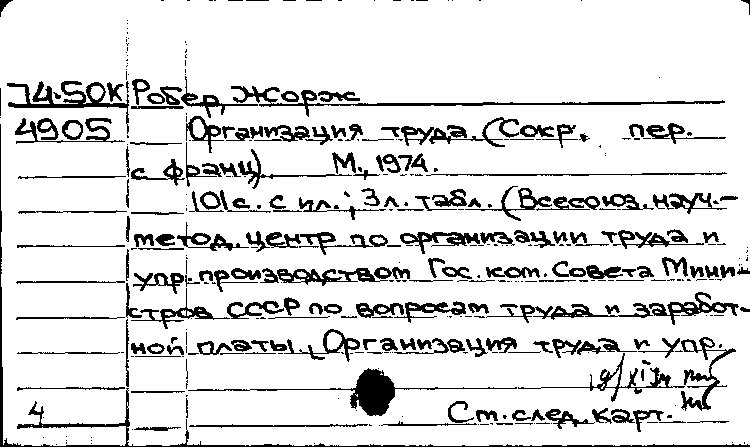 74-50К Робер, Жорж
4905 Организация труда. (Сокр. пер.
с франц). М., 1974.
101с. с ил.; 3л. табл. (Всесоюз. науч.-
метод. центр по организации труда и
упр. производством Гос. ком. Совета Мини-
стров СССР по вопросам труда и заработ-
ной платы. Организация труда и упр.
4 См. след. карт.